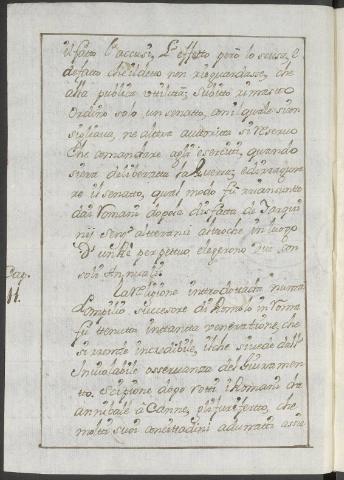 il fatto l'accusi, l'effetto però lo scusa, e
defatto che il detto non riguardasse, che
alla publica utilità; subito rimasto
ordinò solo un senatto, con il quale si con
sigliava, ne altra autorità si riservò
che comandare agli eserciti, quando
siera deliberatta la Guerra, ed irraguna
re il senatto, qual modo fu
dai Romani dopo la disfatta di Tarqui
nij senza altterarsi alttro che in luogo
D' un Rè perpettuo, elegerono due con
soli Annuali.
Cap.
11.
La Religione introdotta da numa
Pompilio successore di Romolo in Roma
fu ttenuta in tanta veneratione, che
si rende incredibile, il che si vede dall'
Inviolabile osservanza del Giuramen
to. Scipione dopo rotti i Romani da
annibale à Canne, gli fu riferto, che
molti suoi concittadini adunatti assie